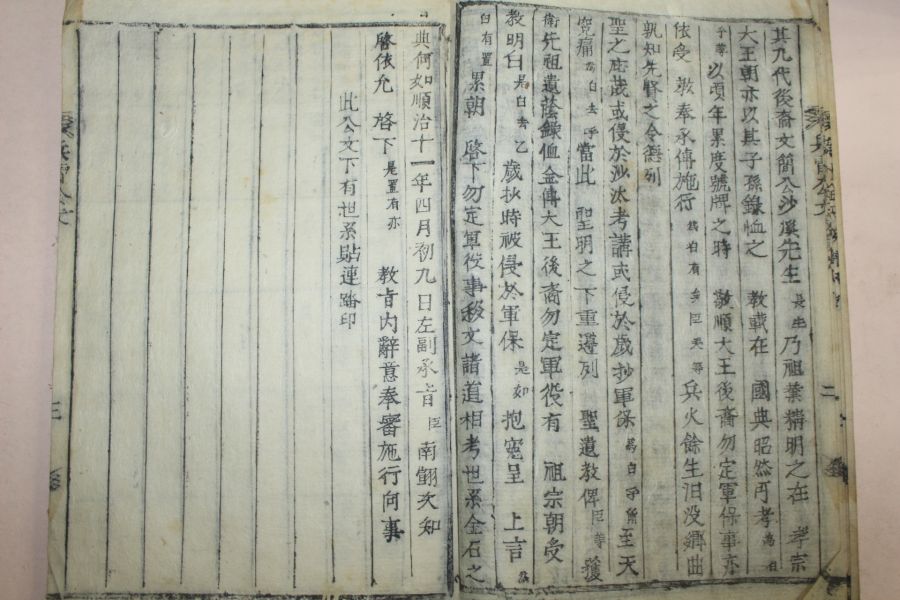 其九代後裔文簡公沙溪先生 長生 乃祖業精明之在 孝宗
大王朝亦以其子孫錄恤之 敎載在 國典昭然可考 爲白
乎等 以頃年累度號牌之時 敬順大王後裔勿定軍保事亦
依受 敎奉承傳施行 敎有 臣矣等 兵火餘生汨没鄕曲
親知先賢之令德列
聖之 或侵於沙汰考講或侵於歲抄軍保 爲白 至天
寃痛 爲白去乎 當此 聖明之下重遵列 聖遺敎俾 臣等 獲
衛先祖遺蔭錄恤金傳大王後裔勿定軍役有 祖宗朝受
敎明白 是白去乙 歲抄時被侵於軍保 是如 抱寃呈 上言
白有置 累朝 啓下勿定軍役事移文諸道相考世系金石之
典何如順治十一年四月初九日左副承旨 臣 南翧次知
啓依允 啓下 是置有亦 敎旨內辭意奉審施行向事
此公文下有世系貼連踏印
二
三